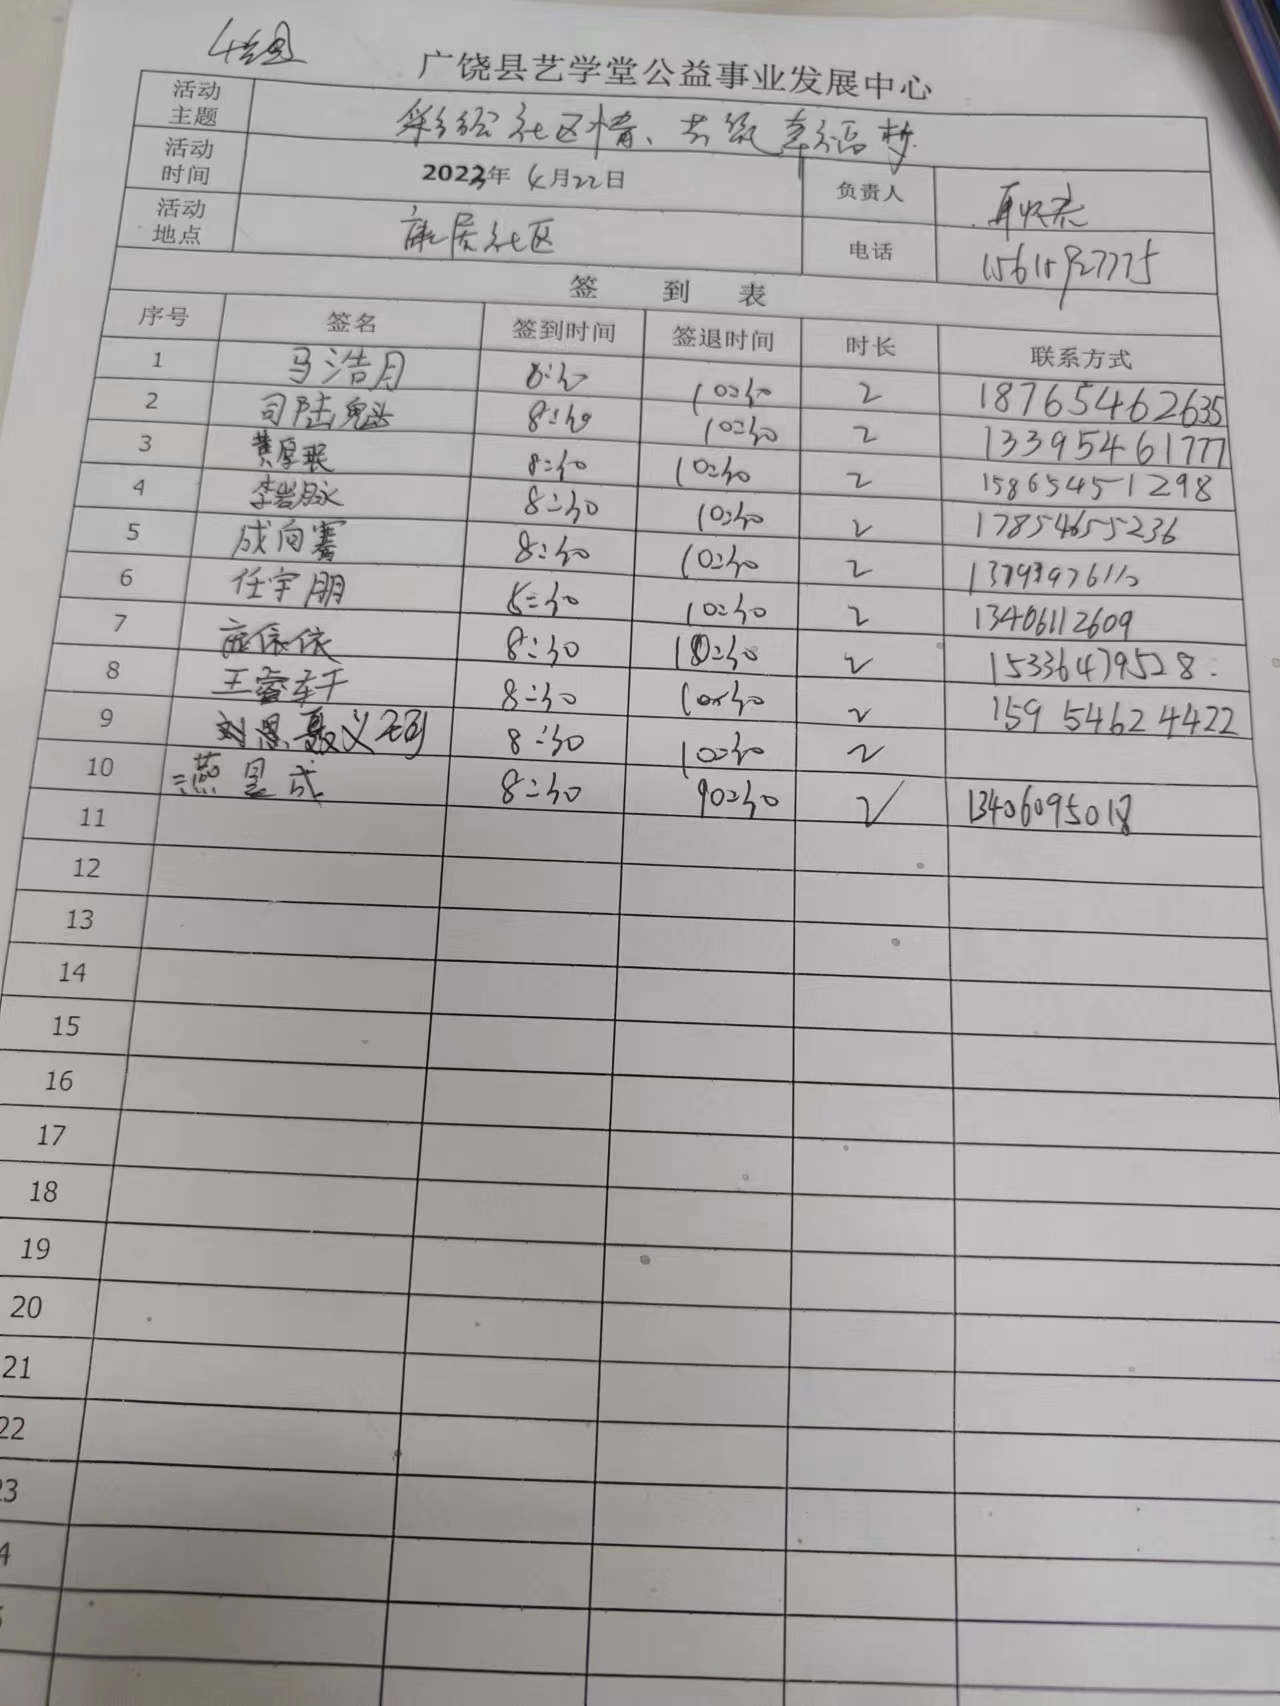 4组
广饶县艺学堂公益事业发展中心
活动主题 彩绘社区情、共筑幸福梦
活动时间 2023年 4月22日 负责人
活动地点 康居社区 电话 15615927775
签 到 表
序号 签名 签到时间 签退时间 时长 联系方式
1 马浩月 8:30 10:30 2 18765462635
2 司陆魁 8:30 10:30 2 13395461777
3 黄厚珉 8:30 10:30 2 15865451298
4 李岩脉 8:30 10:30 2 17854655236
5 成向骞 8:30 10:30 2
6 任宇朋 8:30 10:30 2 13406112609
7 依依 8:30 10:30 2 15336479528
8 王睿轩 8:30 10:30 2 15954624422
9 刘恩 聂义 8:30 10:30 2
10 燕昱成 8:30 10:30 2 13406095018
11
12
13
14
15
16
17
18
19
20
21
22
23
4